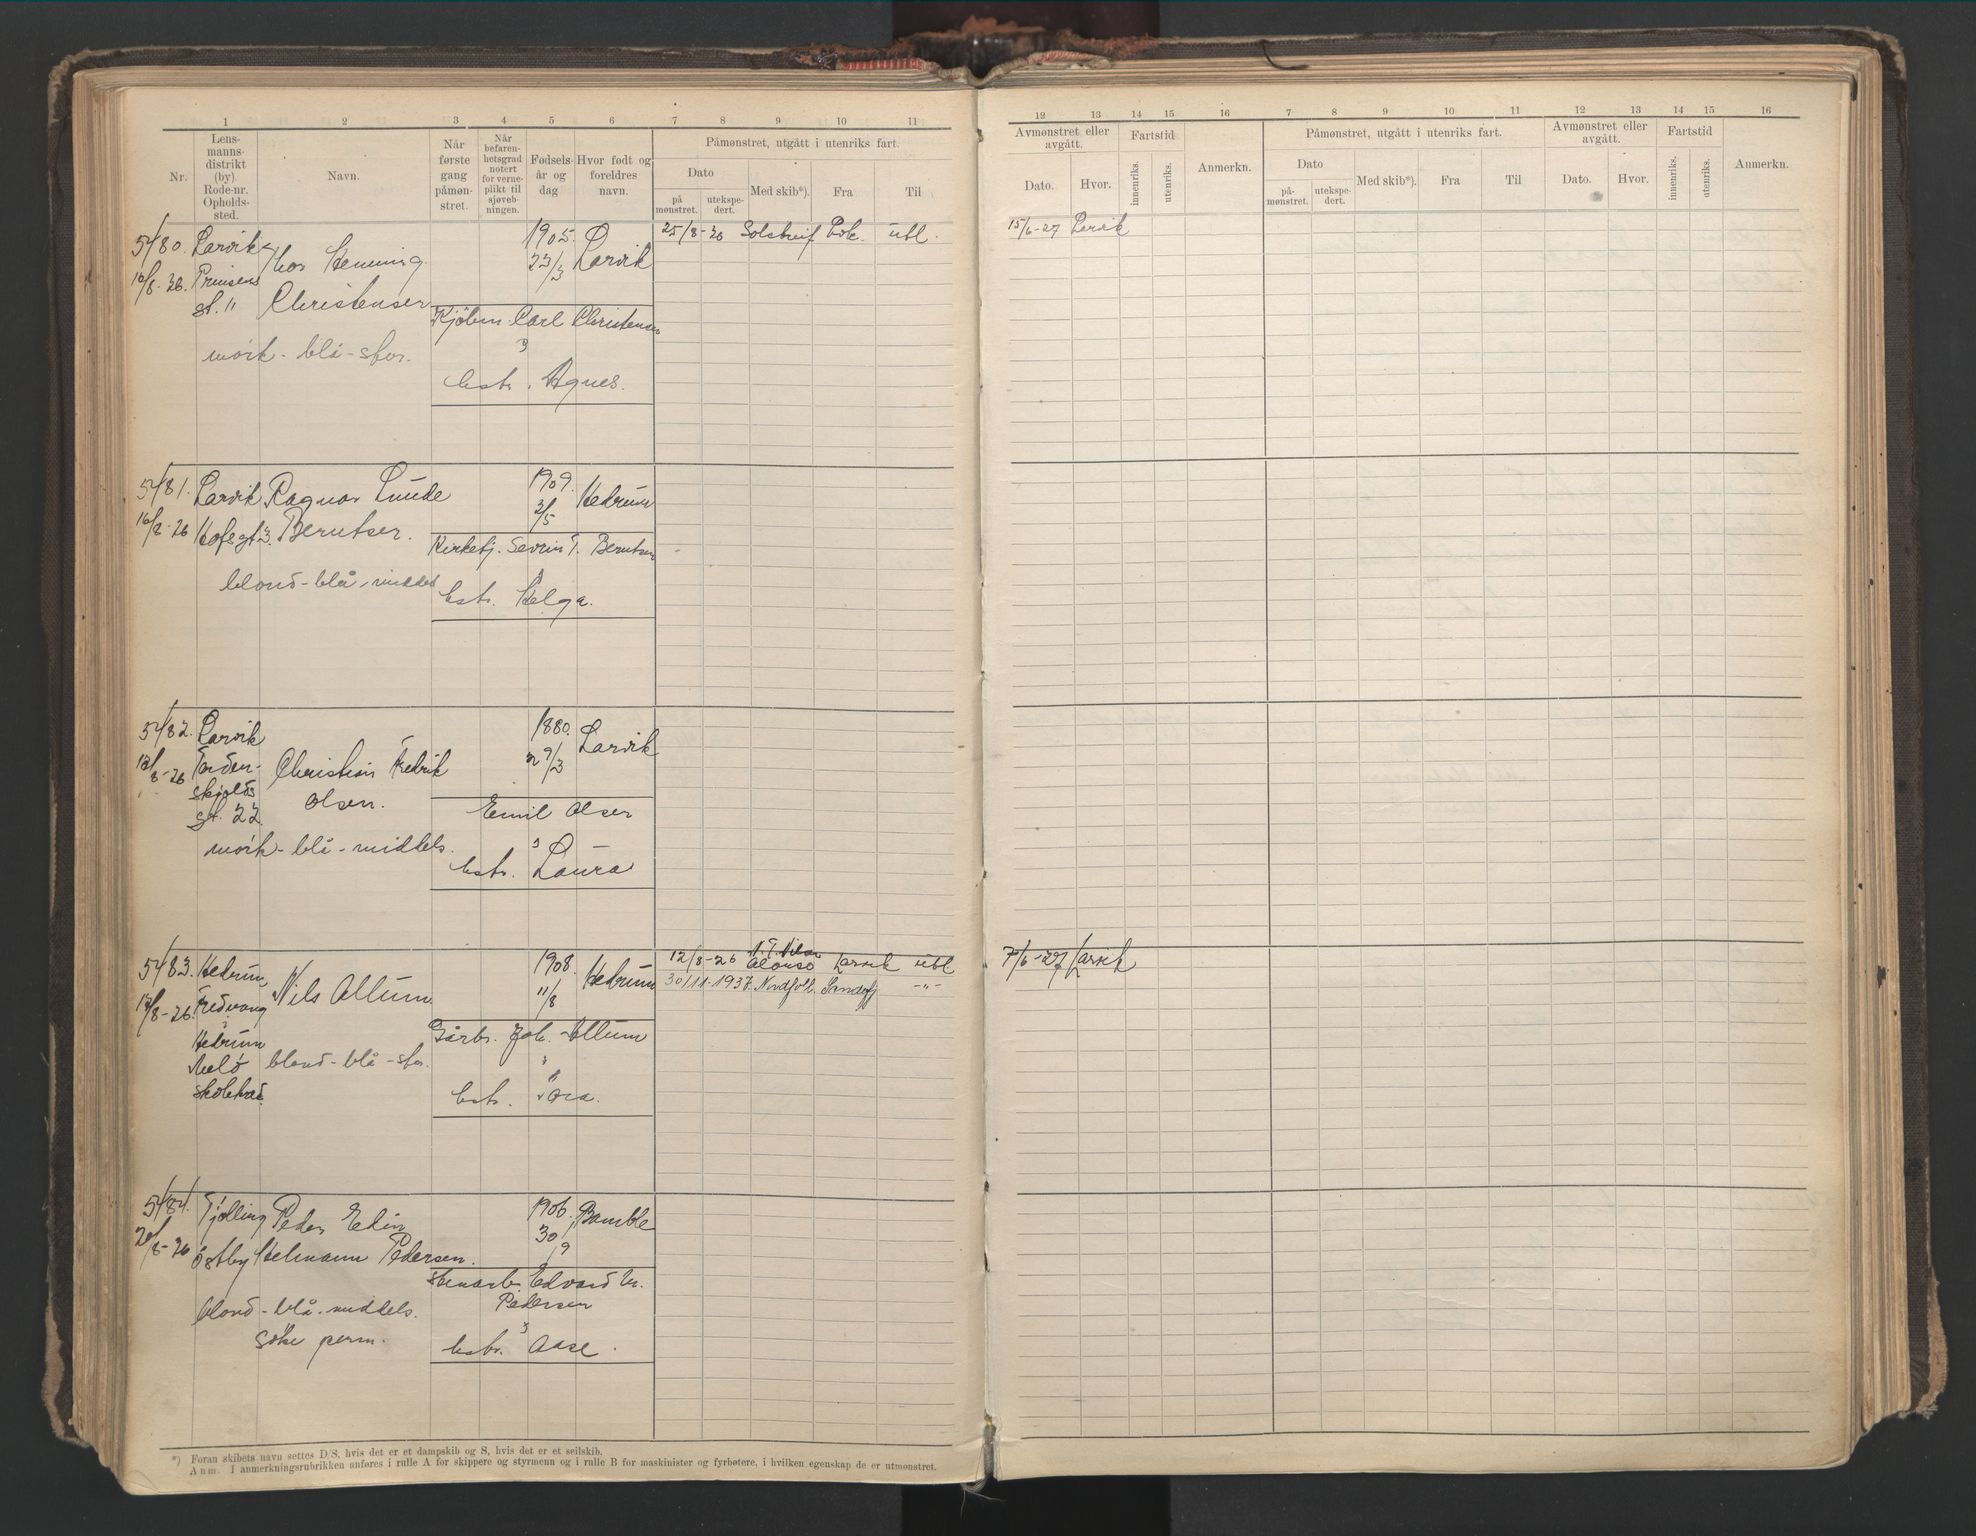 1 2 3 4 5 6 7 8 9 10 11
Nr.
Lens-
manns-
distrikt
(by).
Rode-nr.
Opholds-
sted.
Navn.
Når
første
gang
påmøn-
stret.
Når
befaren-
hetsgrad
notert
for verne-
plikt til
sjøveb-
ningen.
Fødsels-
år og
dag
Hvor født og
foreldres
navn.
Påmønstret, utgått i utenriks fart.
Dato
på
mønstret.
utekspe-
dert.
Med skib*).
Fra
Til
12 13 14 15 16 7 8 9 10 11 12 13 14 15 16
Avmønstret eller
avgått.
Dato.
Hvor.
Fartstid
innenriks.
utenriks.
Anmerkn.
Påmønstret, utgått i utenriks fart.
Dato
på-
mønstret.
utekspe-
dert.
Med skib*).
Fra
Til
Avmønstret eller
avgått.
Dato.
Hvor.
Fartstid
innenriks.
utenriks.
Anmerkn.
5480. Larvik Thor Henning 1905. Larvik 25/8-26 Solstreif ubl. 15/6-27 Larvik
16/8-26. Prinsens Christensen 23/3
st. 11
Kjøbm. Carl Christensen
mørk - blå - stor.
hstr. Agnes.
5481. Larvik Ragnar Lunde 1909. Hedrum
16/8-26 Hofsgt 3. Berntsen. 2/5
Kirketj. Sevrin T. Berntsen
blond - blå - middels
hstr. Helga.
5482. Larvik 1880. Larvik
18/8-26 Torden- Christian Fredrik 29/3
skjolds Olsen.
gt. 22. Emil Olsen
mørk - blå - middels.
hstr. Laura
5483. Hedrum Nils Allum 1908. Hedrum 12/8-26 N.T. Nilsen Alonso Larvik ubl 7/6-27 Larvik
Fredvang 11/8 30/11-1937. Sandefj -"-
Hedrum Gårbr. Joh. Allum
blond - blå - stor.
hstr. Tora.
5484. Tjølling Peder Edin 1906. Bamble
20/8-26 Østby Helmann Pedersen. 30/9
Stenarb. Edvard M.
blond - blå - middels. Pedersen
Søke perm.
hstr. Aase.
*) Foran skibets navn settes D/S, hvis det er et dampskib og S, hvis det er et seilskib.
Anm. I anmerkningsrubrikken anføres i rulle A for skippere og styrmenn og i rulle B for maskinister og fyrbøtere, i hvilken egenskap de er utmønstret.